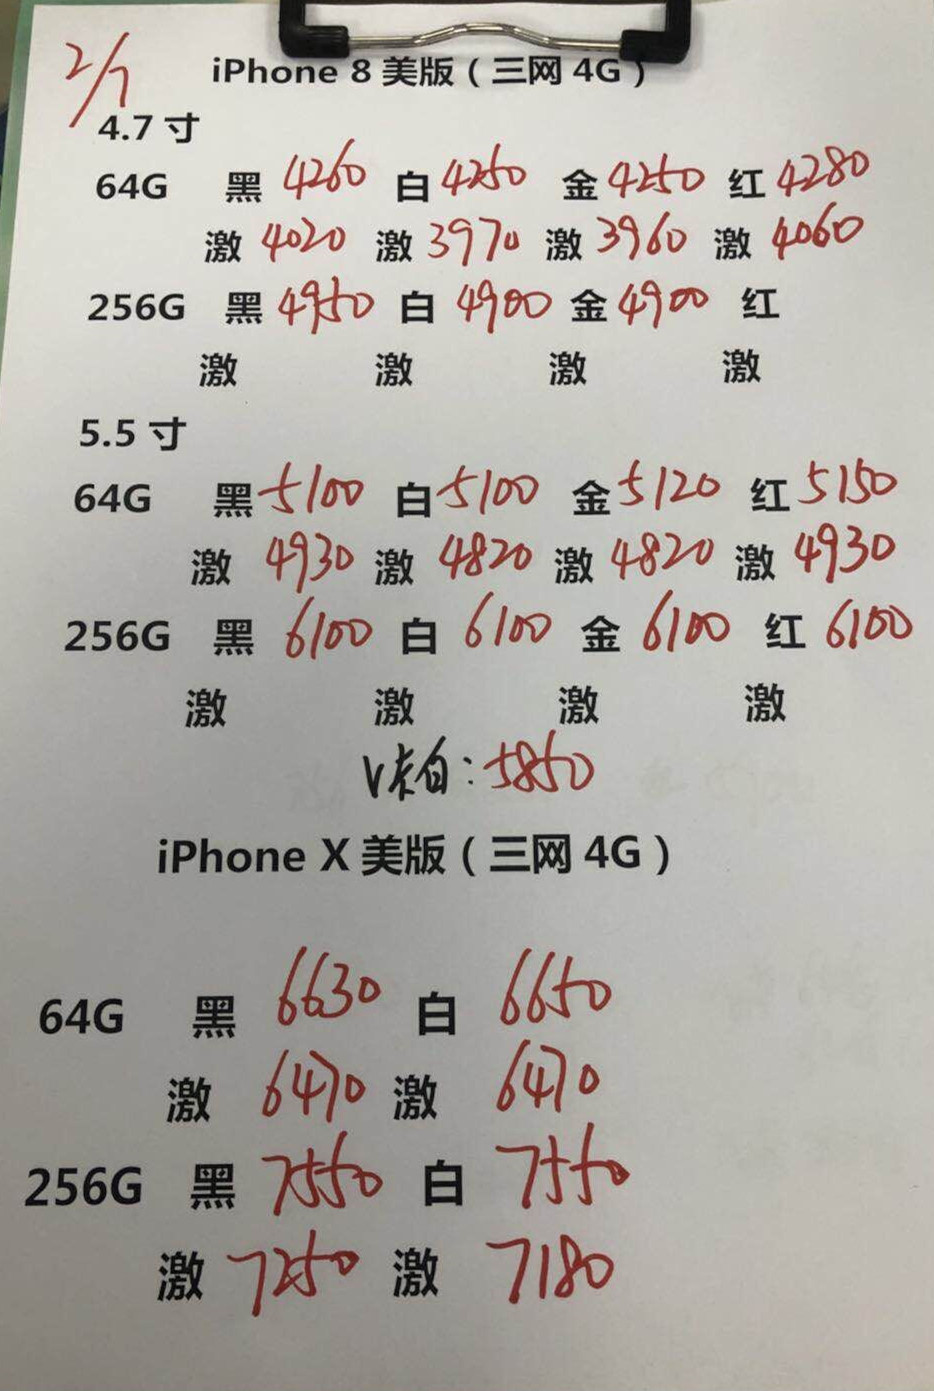 2/7 iPhone 8 美版（三网 4G）
4.7 寸
64G 黑 4260 白 4250 金 4250 红 4280
激 4020 激 3970 激 3960 激 4060
256G 黑 4950 白 4900 金 4900 红
激 激 激 激
5.5 寸
64G 黑 5100 白 5100 金 5120 红 5150
激 4930 激 4820 激 4820 激 4930
256G 黑 6100 白 6100 金 6100 红 6100
激 激 激 激
V卡白：5850
iPhone X 美版（三网 4G）
64G 黑 6630 白 6650
激 6470 激 6470
256G 黑 7550 白 7550
激 7250 激 7180